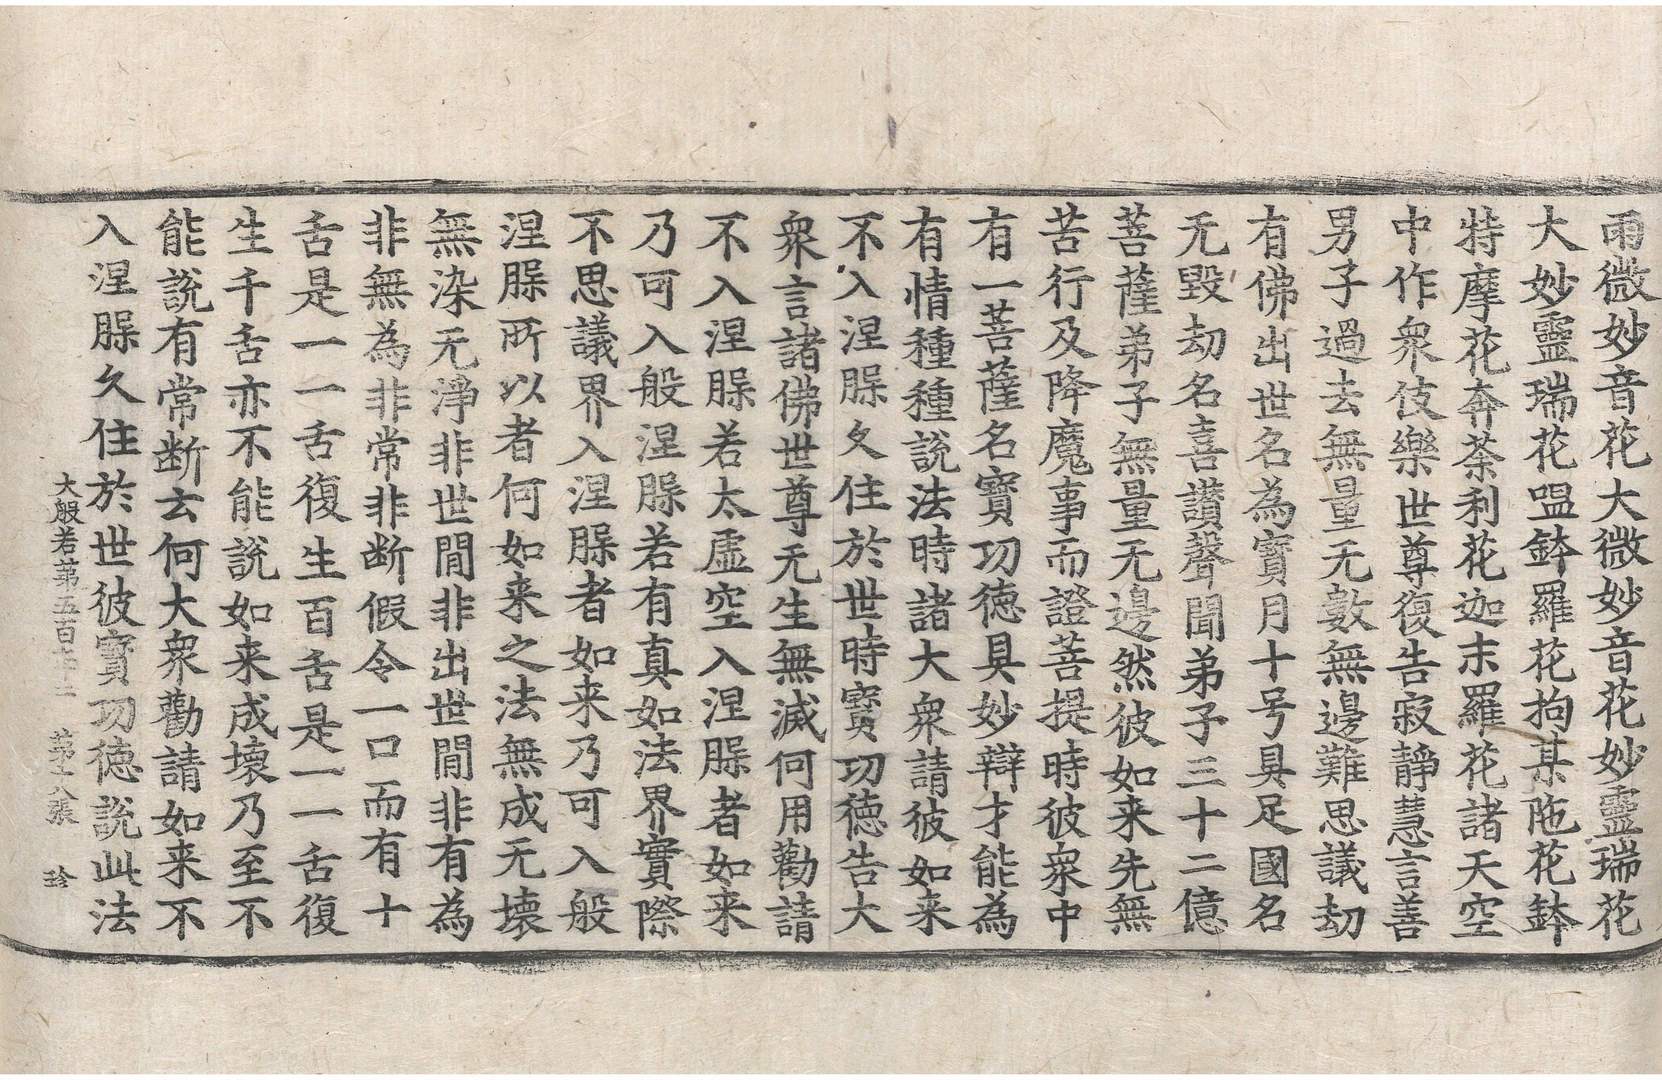 雨微妙音花大微妙音花妙靈瑞花
大妙靈瑞花嗢鉢羅花拘某陁花鉢
特摩花奔荼利花迦末羅花諸天空
中作衆伎樂世尊復告寂靜慧言善
男子過去無量无數無邊難思議劫
有佛出世名為寶月十号具足國名
无毀劫名喜讚聲聞弟子三十二億
菩薩弟子無量无邊然彼如来先無
苦行及降魔事而證菩提時彼衆中
有一菩薩名寶功德具妙辯才能為
有情種種說法時諸大衆請彼如来
不入涅槃久住於世時寶功德告大
衆言諸佛世尊无生無滅何用勸請
不入涅槃若太虛空入涅槃者如来
乃可入般涅槃若有真如法界實際
不思議界入涅槃者如来乃可入般
涅槃所以者何如来之法無成无壞
無染无淨非世間非出世間非有為
非無為非常非断假令一口而有十
舌是一一舌復生百舌是一一舌復
生千舌亦不能說如来成壞乃至不
能說有常断去何大衆勸請如来不
入涅槃久住於世彼寶功德說此法
大般若第五百六十二 第十八張 珍